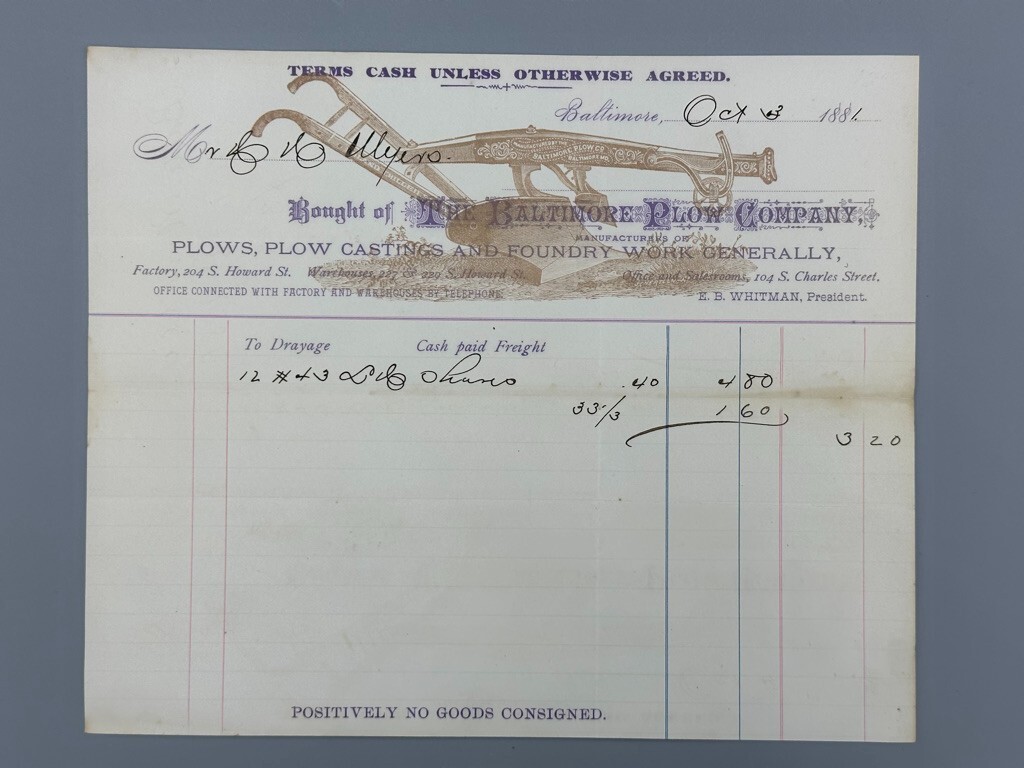 TERMS CASH UNLESS OTHERWISE AGREED.
Baltimore, Oct 3 1881.
Mr Myers.
MANUFACTURED BY THE
BALTIMORE PLOW CO.
BALTIMORE MD.
Bought of THE BALTIMORE PLOW COMPANY,
MANUFACTURERS OF
PLOWS, PLOW CASTINGS AND FOUNDRY WORK GENERALLY,
Factory, 204 S. Howard St. Warehouses, 227 & 229 S. Howard St. Office and Salesrooms, 104 S. Charles Street.
OFFICE CONNECTED WITH FACTORY AND WAREHOUSES BY TELEPHONE. E. B. WHITMAN, President.
To Drayage Cash paid Freight
12 #43 Shares .40 4 80
33 1/3 1 60
3 20
POSITIVELY NO GOODS CONSIGNED.